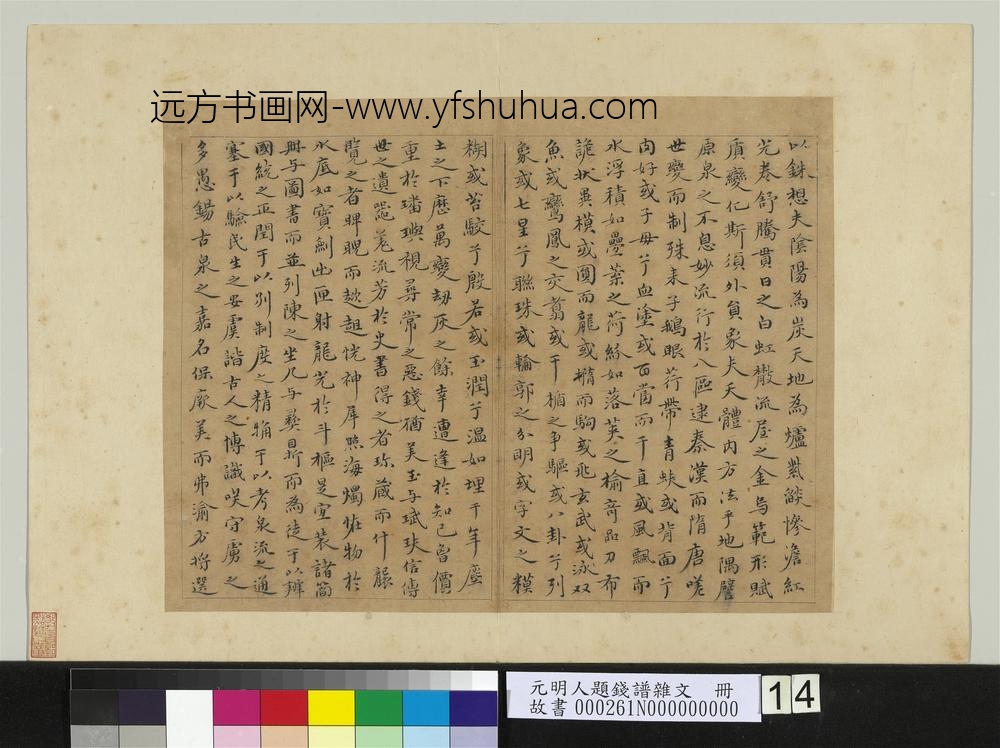 远方书画网-www.yfshuhua.com
以銖想夫陰陽為炭天地為爐紫燄慘澹紅
光卷舒騰貫日之白虹散流屋之金烏範形賦
質變化斯須外負象夫天體内方法乎地隅譬
原泉之不息妙流行於八區逮秦漢而隋唐嗟
世變而制殊耒子鵝眼荇帶青蚨或背面兮
肉好或子母兮血塗或百當而千直或風飄而
水浮積如疊葉之荷紛如落英之榆奇品刀布
詭状異模或圓而龍或橢而駒或飛玄武或泳双
魚或鸞鳳之交翥或干楯之争驅或八卦兮列
象或七星兮聯珠或輪郭之分明或字文之糢
糊或苔駮兮殷若或玉潤兮温如埋千年塵
土之下歷萬變劫灰之餘幸遭逢於知己曾價
重於璠璵視尋常之惡錢猶美玉与珷玞信傳
世之遺器羗流芳於史書得之者珎蔵而什襲
覽之者睥睨而趑趄恍神犀照海燭恠物於
水底如寶劍出匣射龍光於斗樞是宜装諸簡
冊与圖書而並列陳之坐几与彝鼎而為徒于以辨
國統之正閏于以别制度之精觕于以考泉流之通
塞于以驗民生之安虞諧古人之博識咲守虜之
多愚錫古泉之嘉名保厥美而弗渝方将選
元明人題錢譜雜文 冊
故書 000261N000000000
14